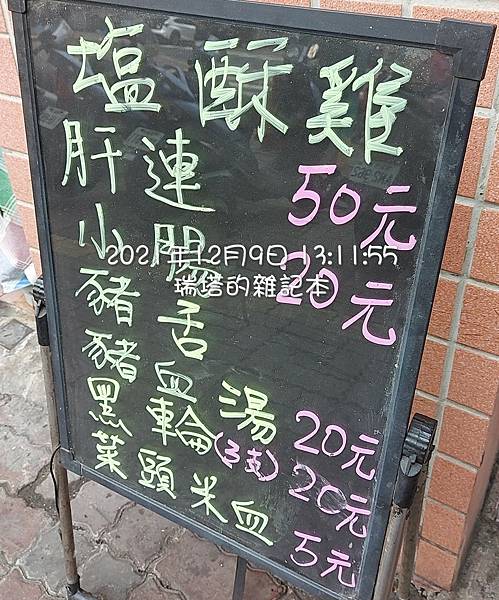 塩酥雞
肝連 50元
小腸 20元
豬舌
豬血湯 20元
黑輪(3支) 20元
菜頭米血 5元
2021年12月9日 13:11:55
瑞塔的雜記本